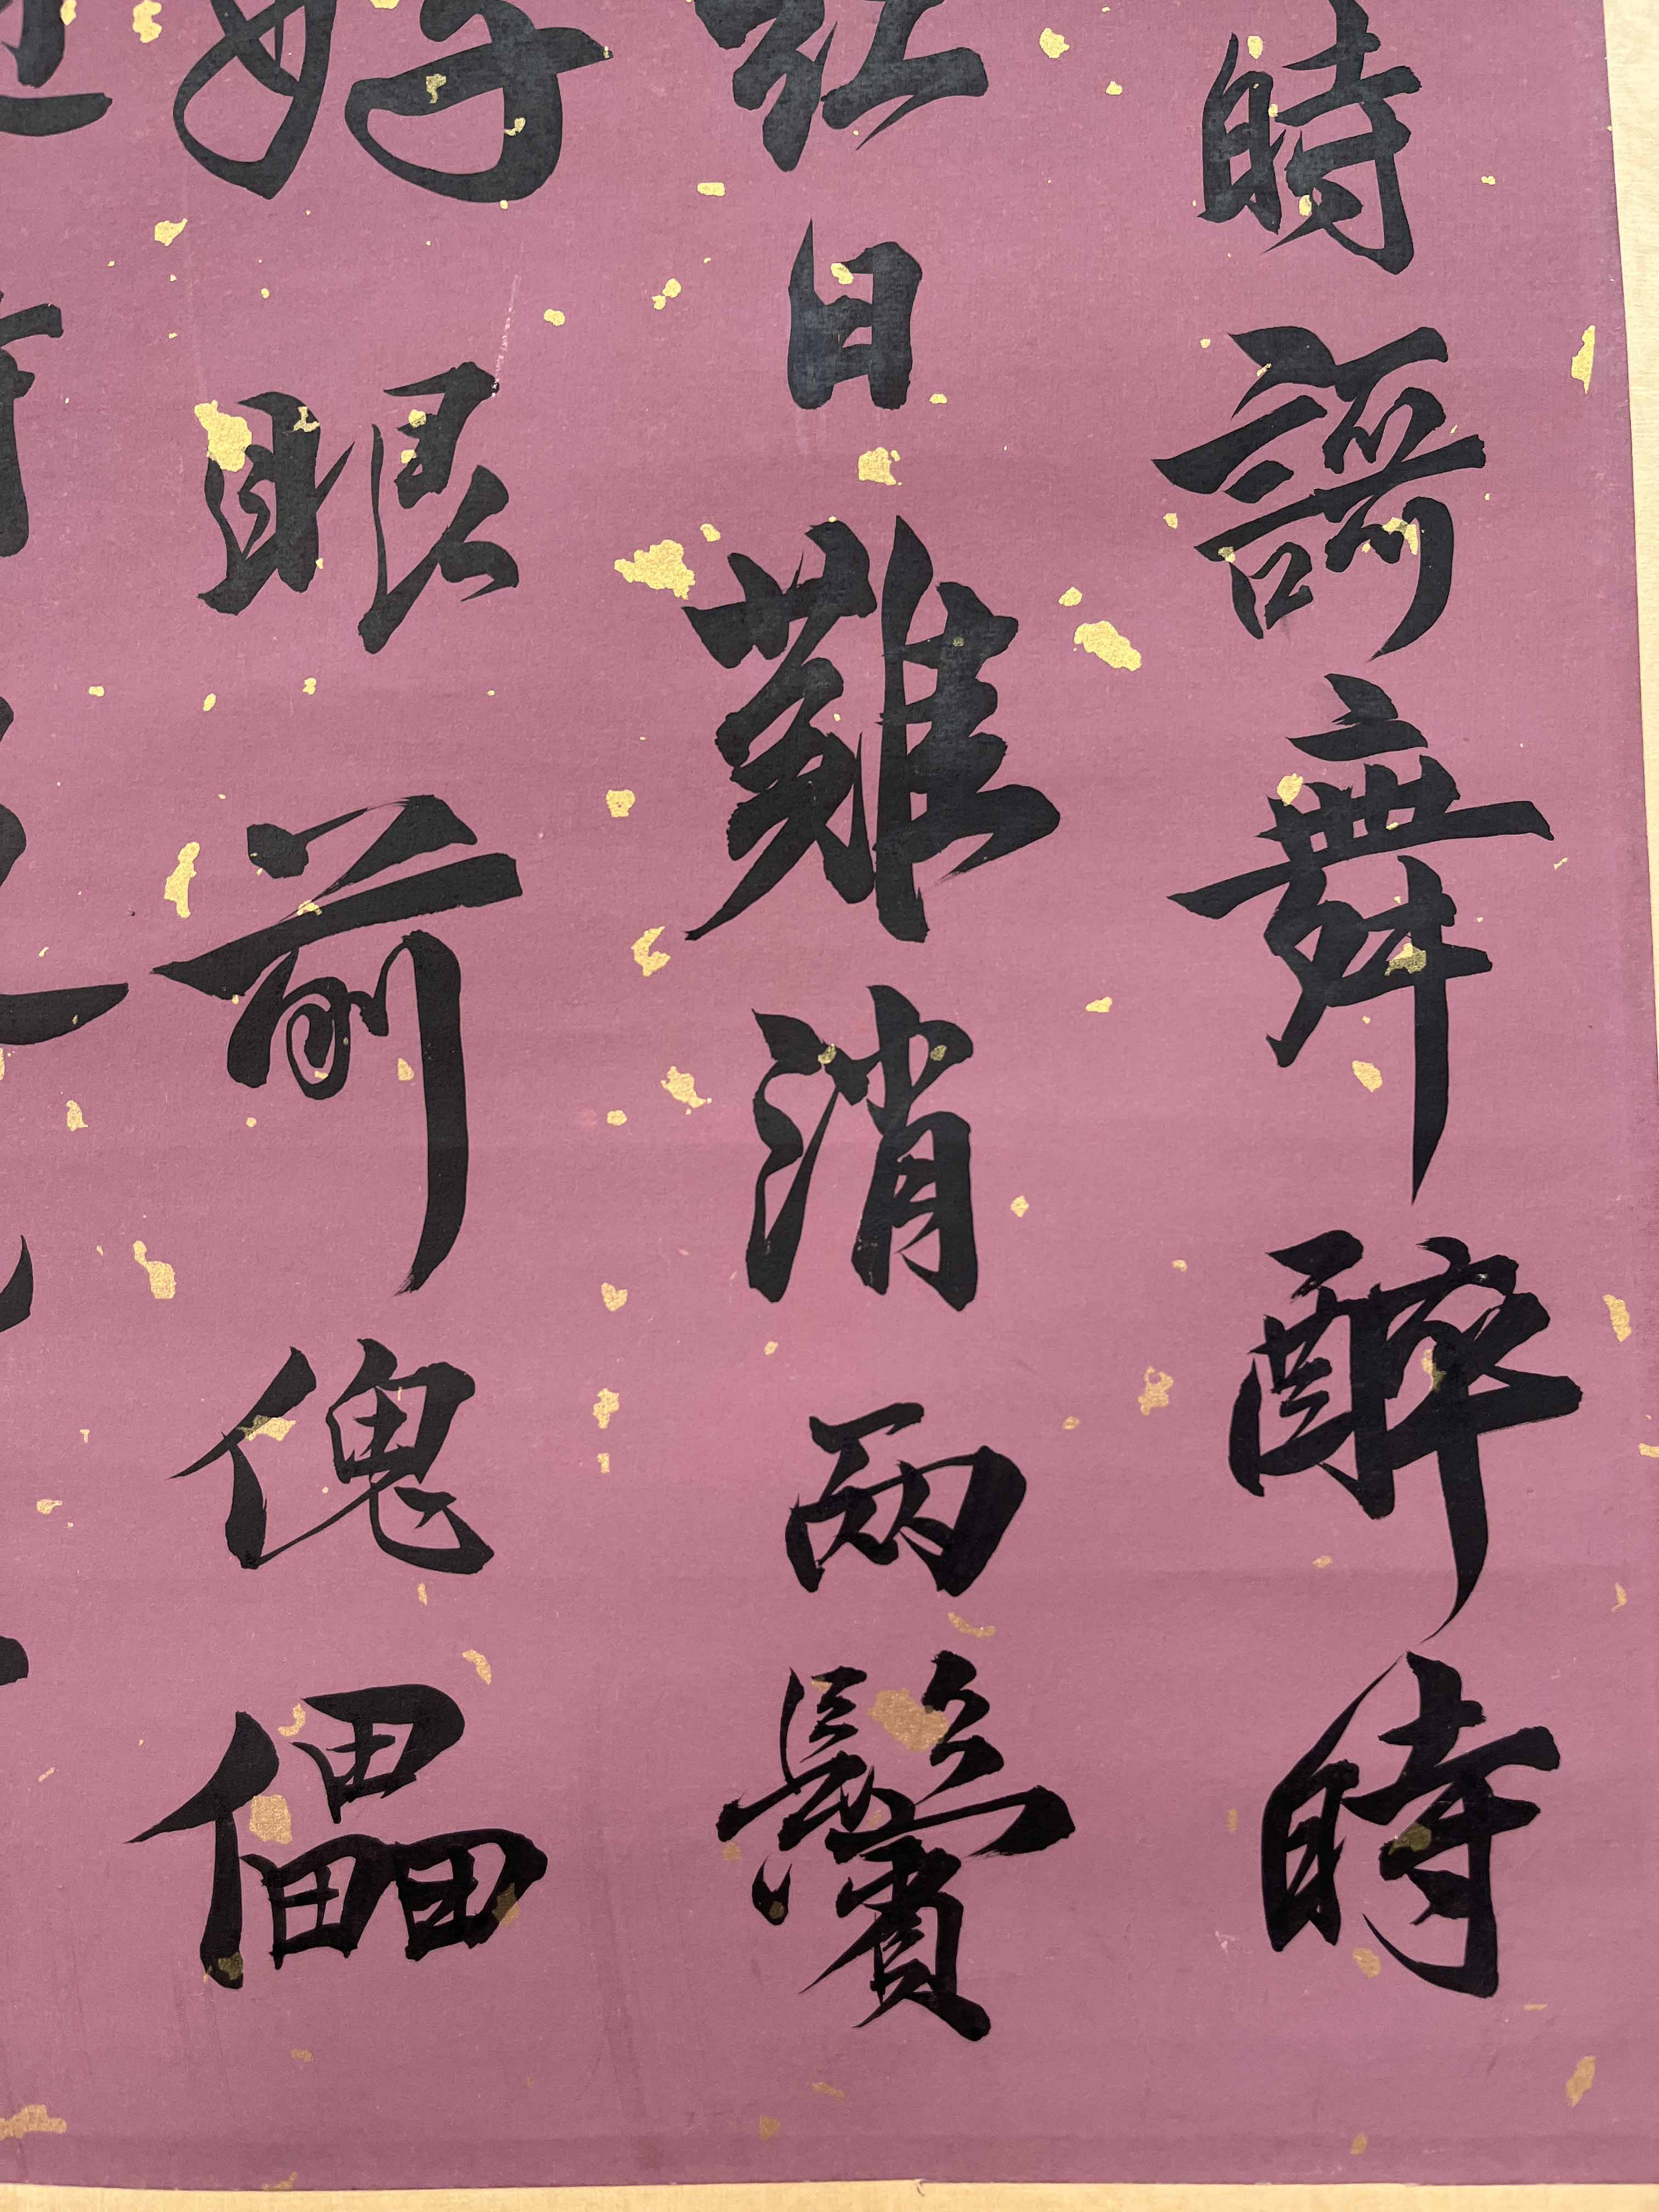 時謌舞醉時
紅日難消兩鬢
好眼前傀儡